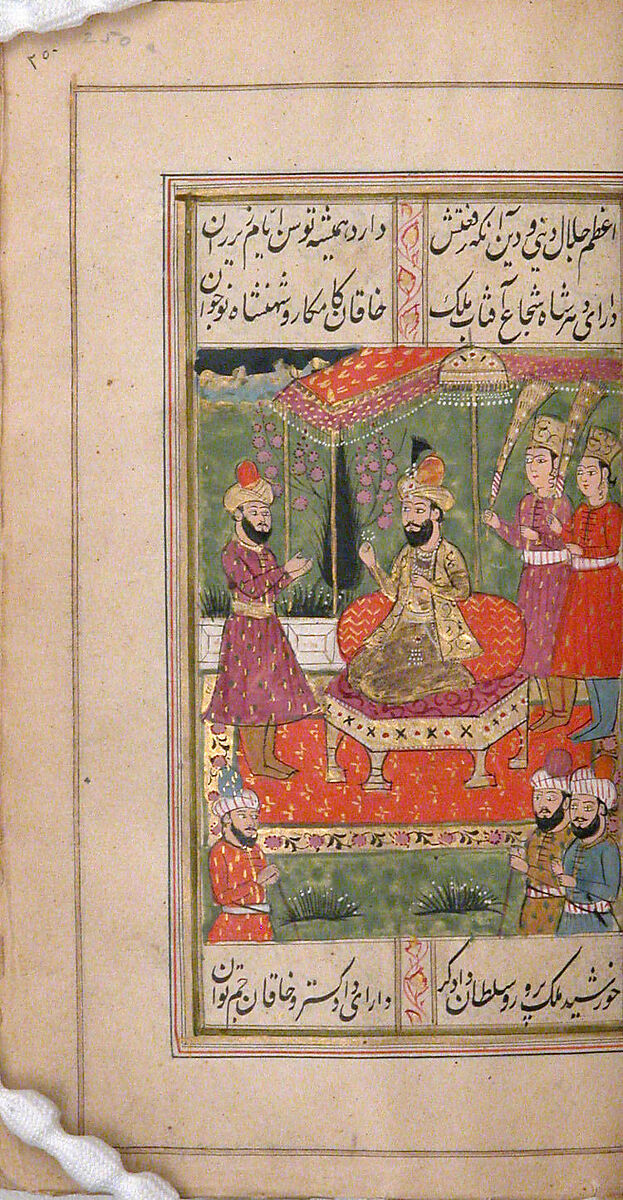 ۲۵۰ 250
اعظم جلال دنیی و دین آنکه رفعتش دارد همیشه توسن ایام زیر ران
دارای دهر شاه شجاع آفتاب ملک خاقان کامکار و شهنشاه نوجوان
خورشید ملک پرور و سلطان دادگر دارای دادگستر و خاقان جم توان